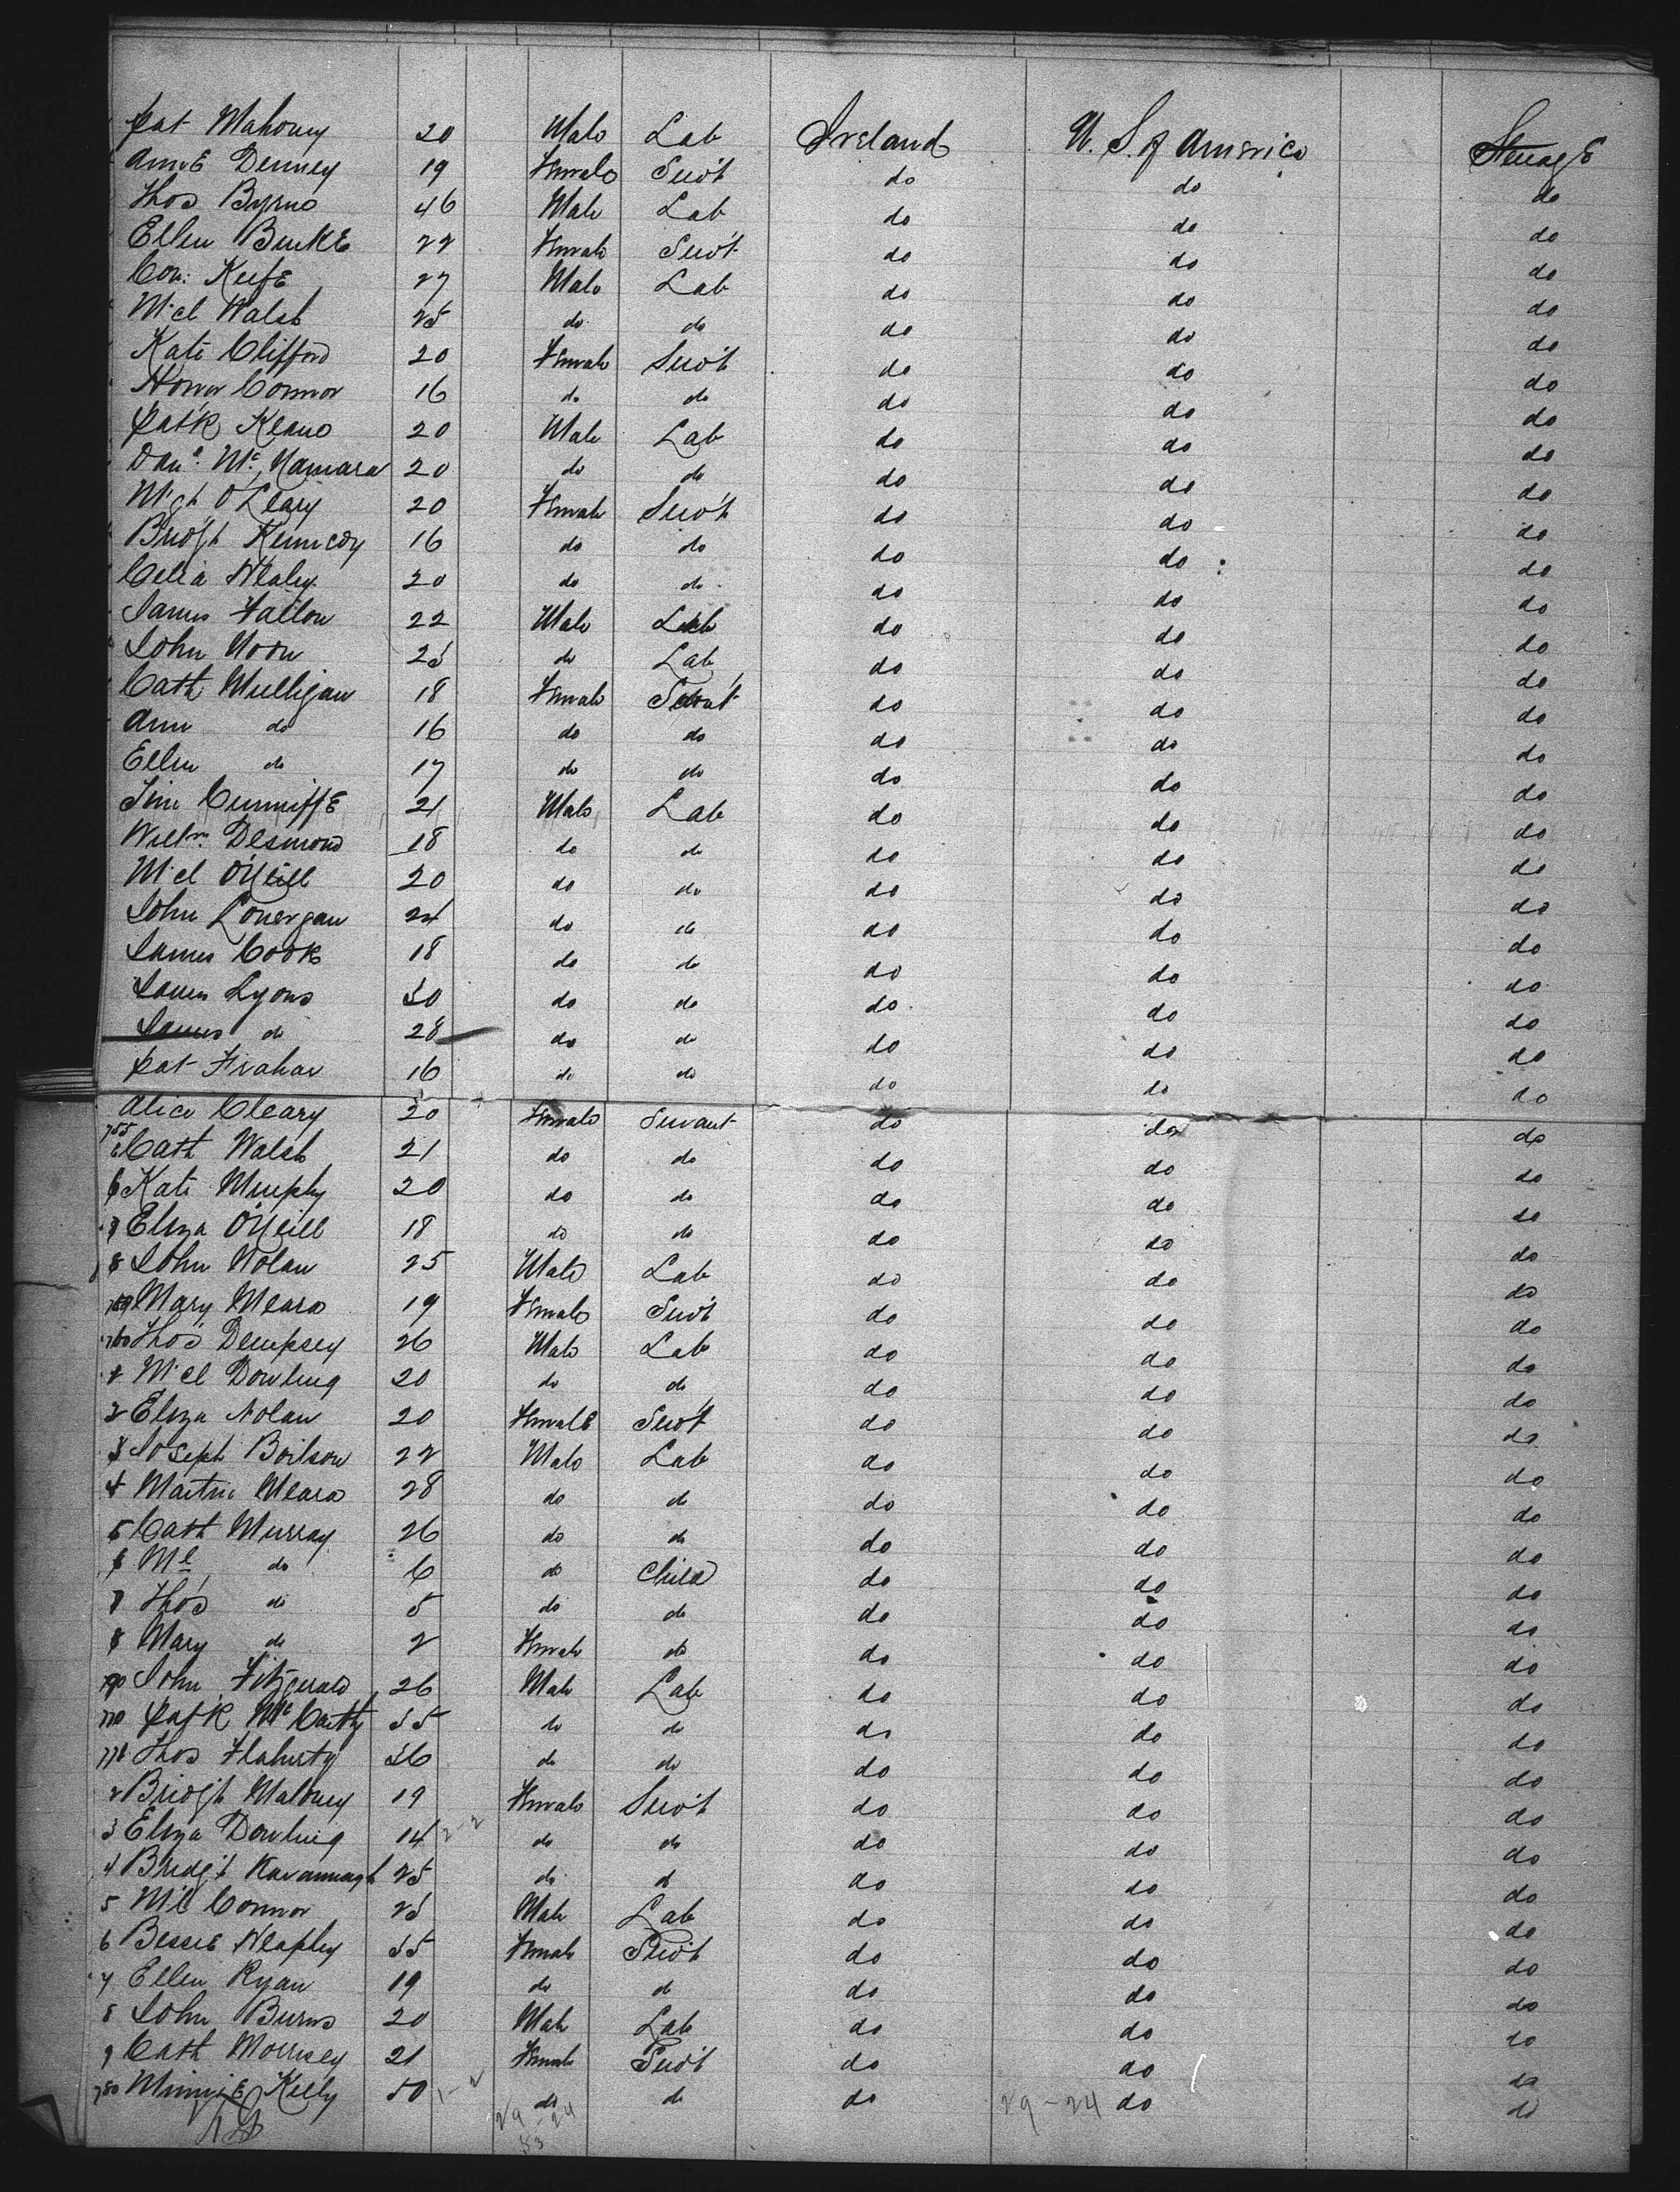 Pat Mahony 20 Male Lab Ireland U. S. of America Steerage
Annie Denney 19 Female Servt do do do
Thos Byrne 46 Male Lab do do do
Ellen Burke 22 Female Servt do do do
Cor: Keefe 27 Male Lab do do do
Micl Walsh 25 do do do do do
Kate Clifford 20 Female Servt do do do
Honor Connor 16 do do do do do
Patk Keane 20 Male Lab do do do
Danl. Mc Namara 20 do do do do do
O'Leary 20 Female Servt do do do
Bridgt Kennedy 16 do do do do do
Celia Healey 20 do do do do do
James Fallon 22 Male Lab do do do
John Noon 23 do Lab do do do
Cath Mulligan 18 Female Servt do do do
Ann do 16 do do do do do
Ellen do 17 do do do do do
Jim Cunniffe 21 Male Lab do do do
Willm. Desmond 18 do do do do do
Micl O'Neill 20 do do do do do
John Lonergan 24 do do do do do
James Cook 18 do do do do do
James Lyons 30 do do do do do
James do 28 do do do do do
Pat Frahar 16 do do do do do
Alice Cleary 20 Female Servant do do do
755 Cath Walsh 21 do do do do do
6 Kate Murphy 20 do do do do do
7 Eliza O'Neill 18 do do do do do
8 John Nolan 25 Male Lab do do do
759 Mary Meara 19 Female Servt do do do
760 Thos Dempsey 26 Male Lab do do do
1 Micl Dowling 20 do do do do do
2 Eliza Nolan 20 Female Servt do do do
3 Joseph Boilson 22 Male Lab do do do
4 Martin Meara 28 do do do do do
5 Cath Murray 26 do do do do do
6 Ml do 6 do Child do do do
7 Thos do 5 do do do do do
8 Mary do 2 Female do do do do
John Fitzgerald 26 Male Lab do do do
770 Patk McCarthy 35 do do do do do
771 Thos Flaherty 36 do do do do do
2 Bridgt Maloney 19 Female Servt do do do
3 Eliza Dowling 14 2-2 do do do do do
4 Bridgt Kavannagh 25 do do do do do
5 Micl Connor 23 Male Lab do do do
6 Bessie Heaphy 35 Female Servt do do do
7 Ellen Ryan 19 do do do do do
8 John Burns 20 Male Lab do do do
9 Cath Morrisey 21 Female Servt do do do
780 Minnie Kelly 50 1-2 do do do do do
29-24 29-24
53